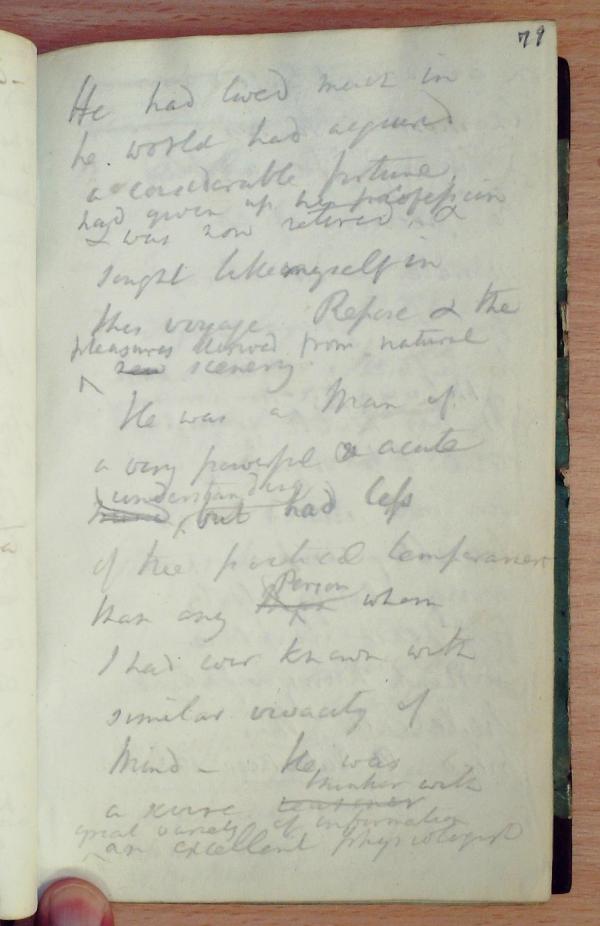 79
He had lived much in
he world had acquired
a considerable fortune,
had given up his profession
& was now retired, &
sought like myself in
this voyage Repose & the
pleasures derived from natural
new scenery.
He was a Man of
a very powerful & acute
understanding
mind, but had less
of the poetical temperament
than any Person whom
I had ever known with
similar vivacity of
Mind – He was
thinker with
a severe reasoner
great variety of information
an excellent physiologist